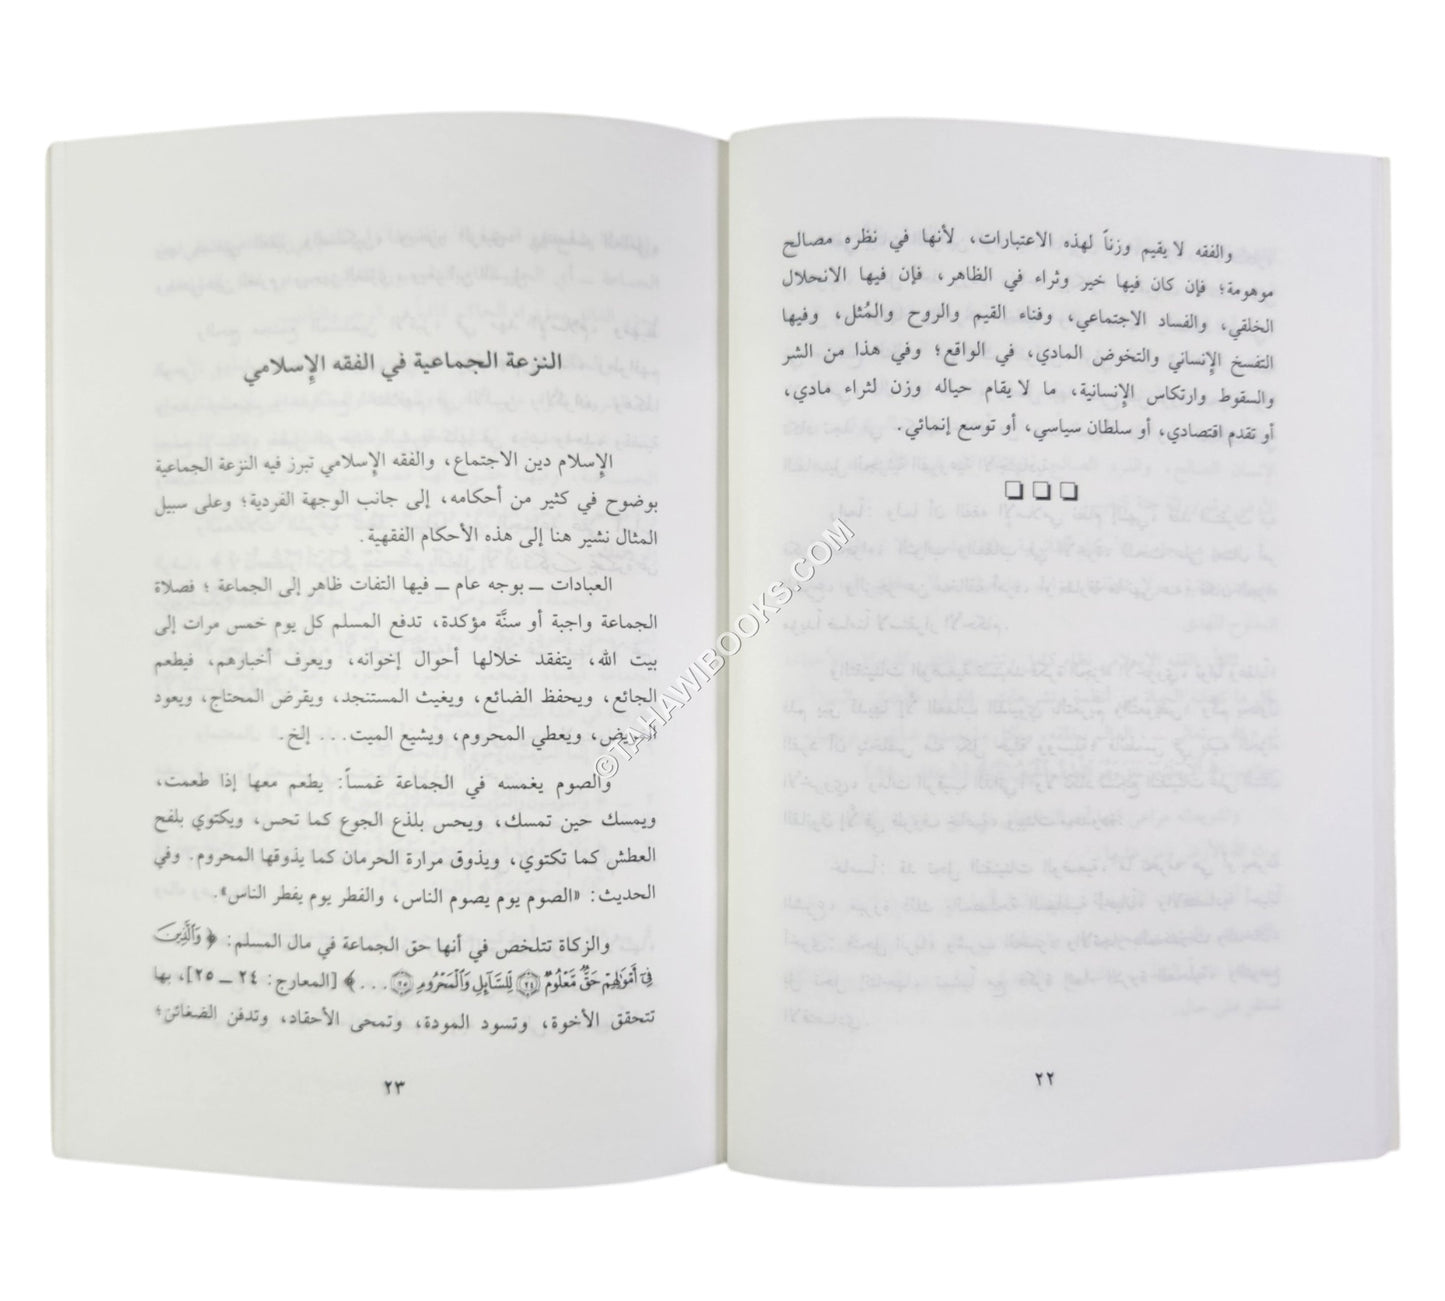 والفقه لا يقيم وزناً لهذه الاعتبارات، لأنها في نظره مصالح
موهومة؛ فإن كان فيها خير وثراء في الظاهر، فإن فيها الانحلال
الخلقي، والفساد الاجتماعي، وفناء القيم والروح والمُثل، وفيها
التفسخ الإنساني والتخوض المادي، في الواقع؛ وفي هذا من الشر
والسقوط وارتكاس الإنسانية، ما لا يقام حياله وزن لثراء مادي،
أو تقدم اقتصادي، أو سلطان سياسي، أو توسع إنمائي.
❏ ❏ ❏
٢٢
النزعة الجماعية في الفقه الإسلامي
الإسلام دين الاجتماع، والفقه الإسلامي تبرز فيه النزعة الجماعية
بوضوح في كثير من أحكامه، إلى جانب الوجهة الفردية؛ وعلى سبيل
المثال نشير هنا إلى هذه الأحكام الفقهية.
العبادات ــ بوجه عام ــ فيها التفات ظاهر إلى الجماعة ؛ فصلاة
الجماعة واجبة أو سنَّة مؤكدة، تدفع المسلم كل يوم خمس مرات إلى
بيت الله، يتفقد خلالها أحوال إخوانه، ويعرف أخبارهم، فيطعم
الجائع، ويحفظ الضائع، ويغيث المستنجد، ويقرض المحتاج، ويعود
المريض، ويعطي المحروم، ويشيع الميت... إلخ.
والصوم يغمسه في الجماعة غمساً: يطعم معها إذا طعمت،
ويمسك حين تمسك، ويحس بلذع الجوع كما تحس، ويكتوي بلفح
العطش كما تكتوي، ويذوق مرارة الحرمان كما يذوقها المحروم. وفي
الحديث: «الصوم يوم يصوم الناس، والفطر يوم يفطر الناس».
والزكاة تتلخص في أنها حق الجماعة في مال المسلم: ﴿ وَٱلَّذِينَ
فِىٓ أَمْوَٰلِهِمْ حَقٌّ مَّعْلُومٌ ۝٢٤ لِّلسَّآئِلِ وَٱلْمَحْرُومِ ۝٢٥ ...﴾ [المعارج: ٢٤ ــ ٢٥]، بها
تتحقق الأخوة، وتسود المودة، وتمحى الأحقاد، وتدفن الضغائن؛
٢٣
©TAHAWIBOOKS.COM